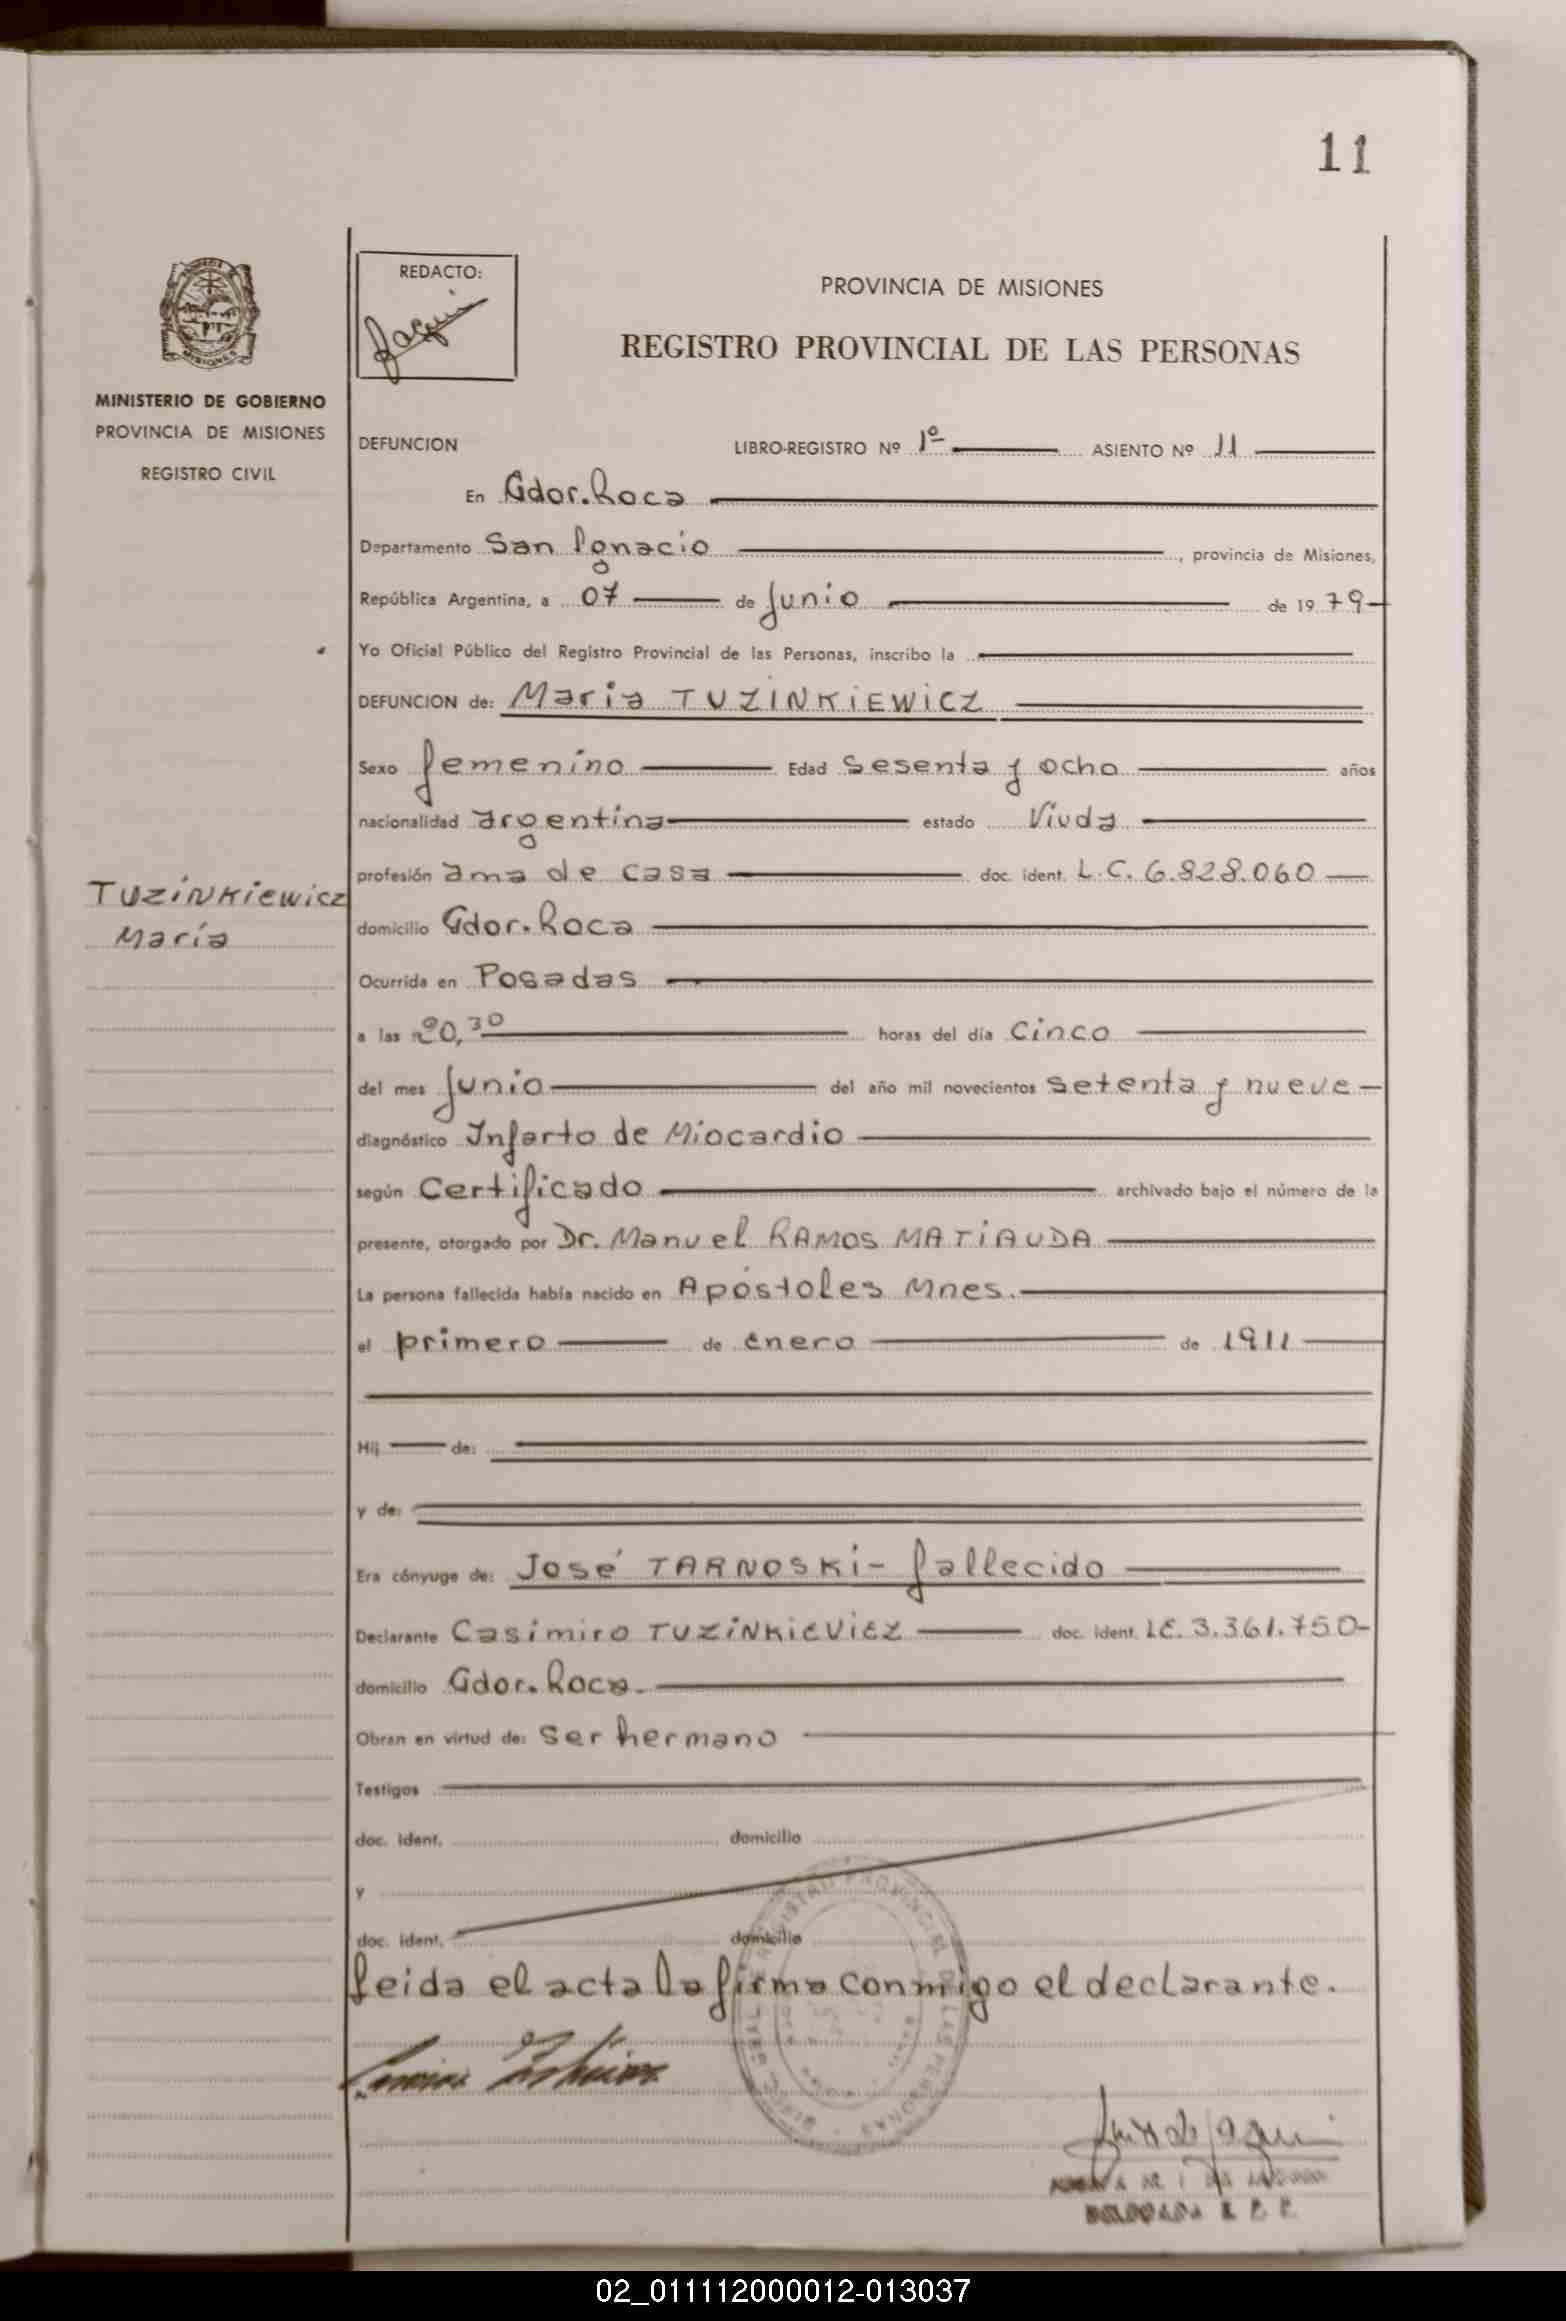 11
REDACTO:
PROVINCIA DE MISIONES
REGISTRO PROVINCIAL DE LAS PERSONAS
MISIONES
MINISTERIO DE GOBIERNO
PROVINCIA DE MISIONES
REGISTRO CIVIL
DEFUNCION LIBRO-REGISTRO Nº 1º ASIENTO Nº 11
En Gdor. Roca
Departamento San Ignacio, provincia de Misiones,
República Argentina, a 07 de Junio de 1979
Yo Oficial Público del Registro Provincial de las Personas, inscribo la
DEFUNCION de: Maria TUZINKIEWICZ
Sexo femenino Edad Sesenta y ocho años
nacionalidad argentina estado Viuda
profesión ama de casa doc. ident. L.C. 6.828.060
TUZINKIEWICZ
María
domicilio Gdor. Roca
Ocurrida en Posadas
a las 20,30 horas del día Cinco
del mes Junio del año mil novecientos setenta y nueve
diagnóstico Infarto de Miocardio
según Certificado archivado bajo el número de la
presente, otorgado por Dr. Manuel RAMOS MATIAUDA
La persona fallecida había nacido en Apóstoles Mnes.
el primero de enero de 1911
Hij de:
y de:
Era cónyuge de: José TARNOSKI - fallecido
Declarante Casimiro TUZINKIEVICZ doc. ident. LE. 3.361.750-
domicilio Gdor. Roca.
Obran en virtud de: Ser hermano
Testigos
doc. ident. domicilio
y
doc. ident. domicilio
leida el acta la firma conmigo el declarante.
REGISTRO PROVINCIAL DE LAS PERSONAS
02_011112000012-013037